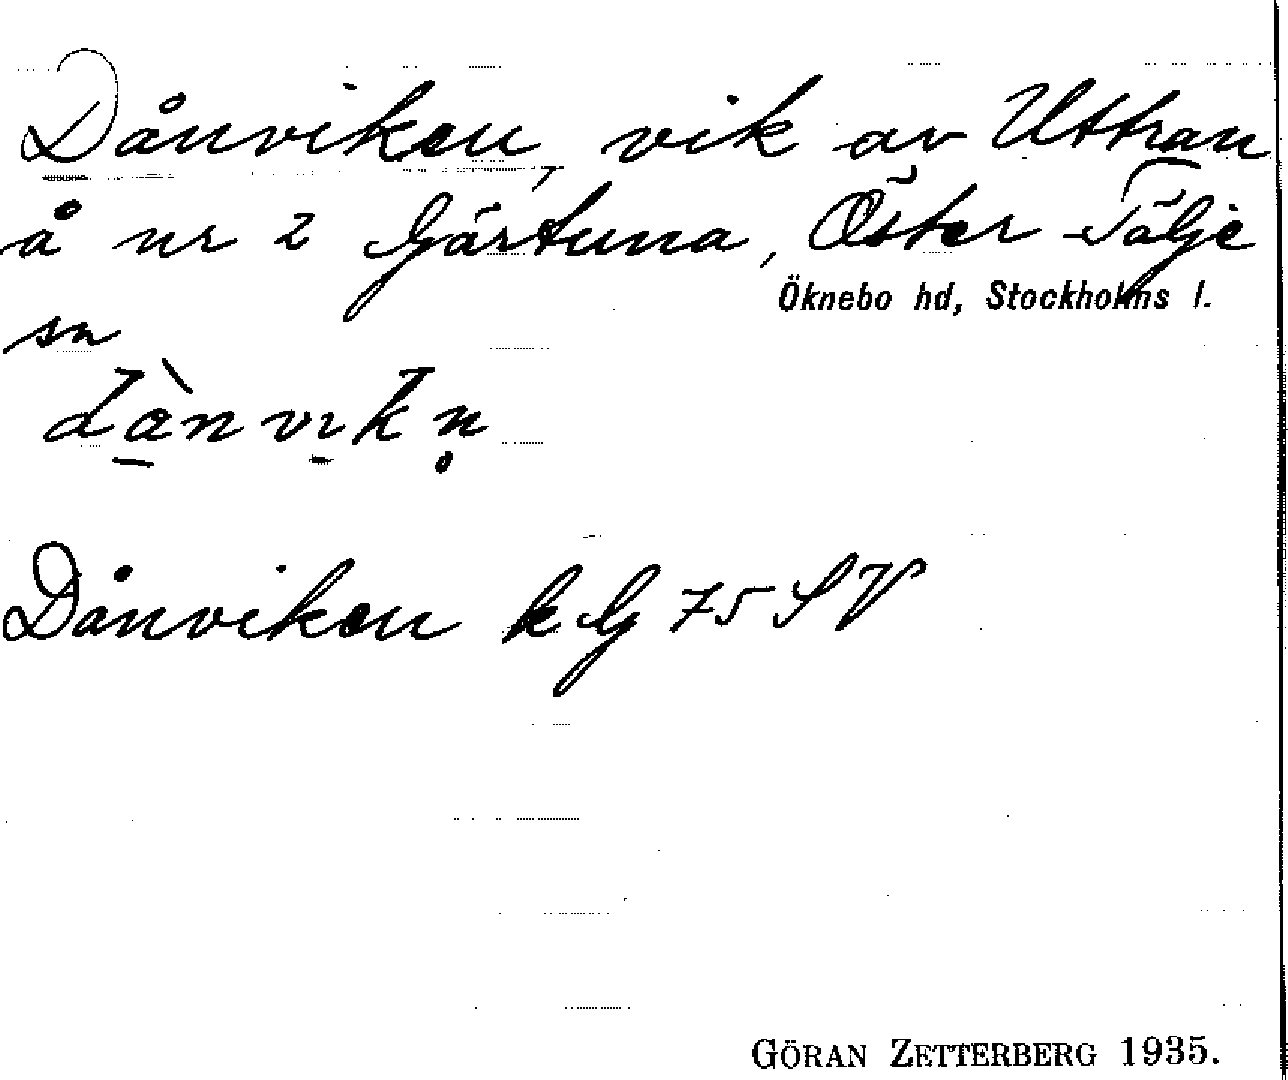 Dånviken, vik av Uttran
å nr 2 Gärtuna, Öster-Tälje
Öknebo hd, Stockholms l.
sn
dànvikn̥
Dånviken k G 75 SV
GÖRAN ZETTERBERG 1935.